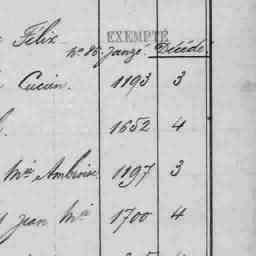 Félix
EXEMPTÉ
n° 86. Janzé. Décédé
Lucien. 1193 3
1652 4
Mie Ambroise 1197 3
Jean Mie 1700 4